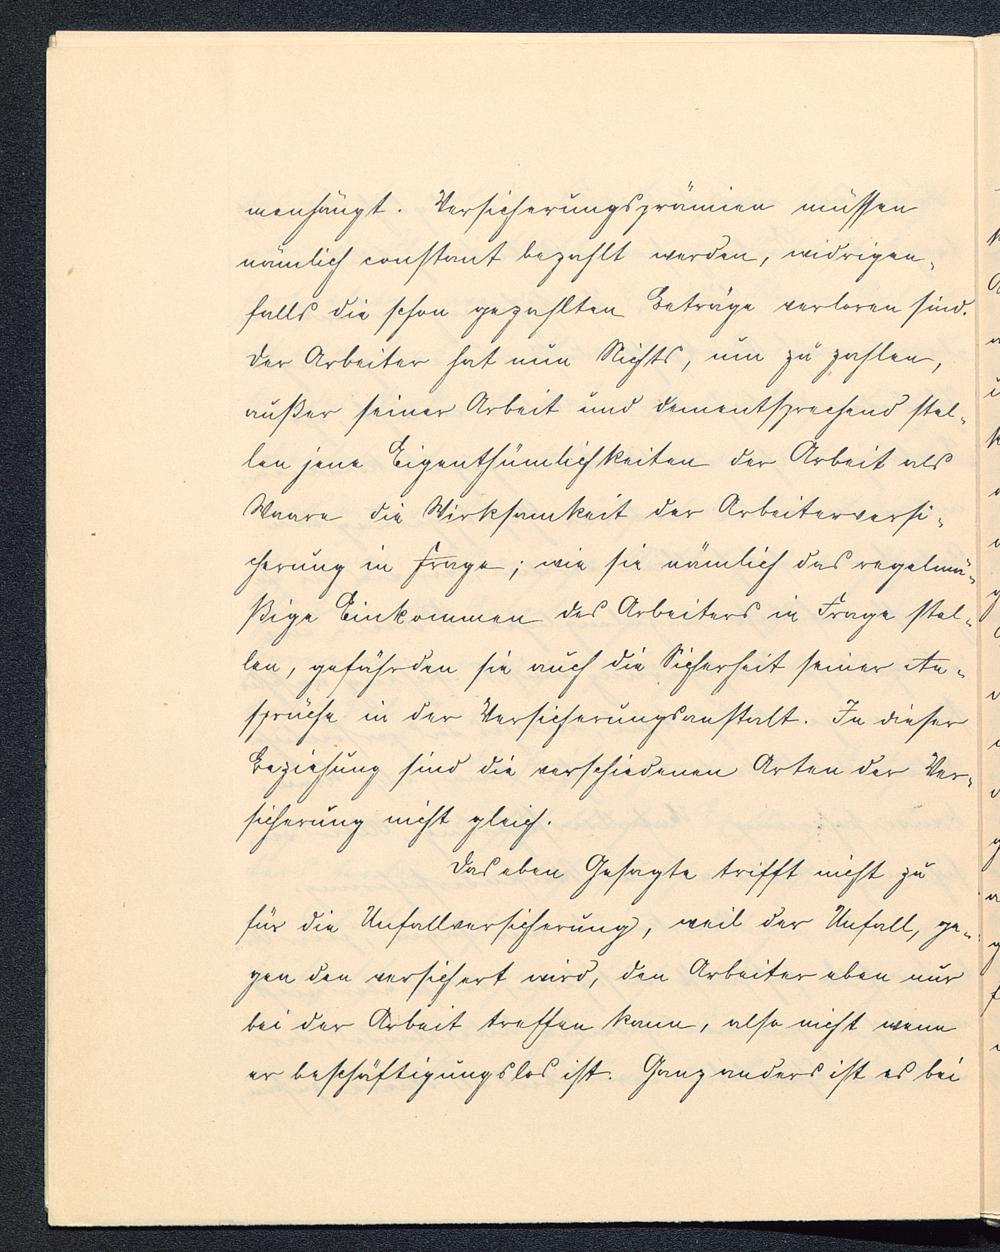 menhängt. Versicherungsprämien müssen
nämlich constant bezahlt werden, widrigen-
falls die schon gezahlten Beträge verloren sind.
Der Arbeiter hat nun Nichts, um zu zahlen,
außer seiner Arbeit und dementsprechend stel-
len jene Eigenthümlichkeiten der Arbeit als
Waare die Wirksamkeit der Arbeiterversi-
cherung in Frage; wie sie nämlich das regelmä-
ßige Einkommen des Arbeiters in Frage stel-
len, gefährden sie auch die Sicherheit seiner An-
sprüche in der Versicherungsanstalt. In dieser
Beziehung sind die verschiedenen Arten der Ver-
sicherung nicht gleich.
Das eben Gesagte trifft nicht zu
für die Unfallversicherung, weil der Unfall, ge-
gen den versichert wird, den Arbeiter eben nur
bei der Arbeit treffen kann, also nicht wenn
er beschäftigungslos ist. Ganz anders ist es bei